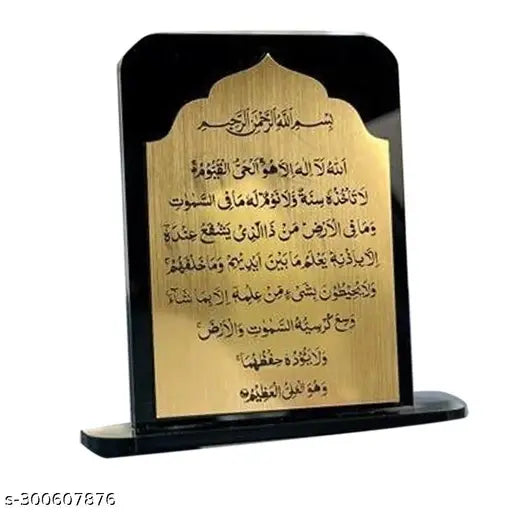 بِسْمِ اللهِ الرَّحْمٰنِ الرَّحِيْمِ
اَللهُ لَآ اِلٰهَ اِلَّا هُوَ اَلْحَيُّ الْقَيُّوْمُ
لَا تَاْخُذُهٗ سِنَةٌ وَّلَا نَوْمٌ لَهٗ مَا فِى السَّمٰوٰتِ
وَمَا فِى الْاَرْضِ مَنْ ذَا الَّذِىْ يَشْفَعُ عِنْدَهٗ
اِلَّا بِاِذْنِهٖ يَعْلَمُ مَا بَيْنَ اَيْدِيْهِمْ وَمَا خَلْفَهُمْ
وَلَا يُحِيْطُوْنَ بِشَىْءٍ مِّنْ عِلْمِهٖ اِلَّا بِمَا شَآءَ
وَسِعَ كُرْسِيُّهُ السَّمٰوٰتِ وَالْاَرْضَ
وَلَا يَؤُدُهٗ حِفْظُهُمَا
وَهُوَ الْعَلِىُّ الْعَظِيْمُ
s-300607876